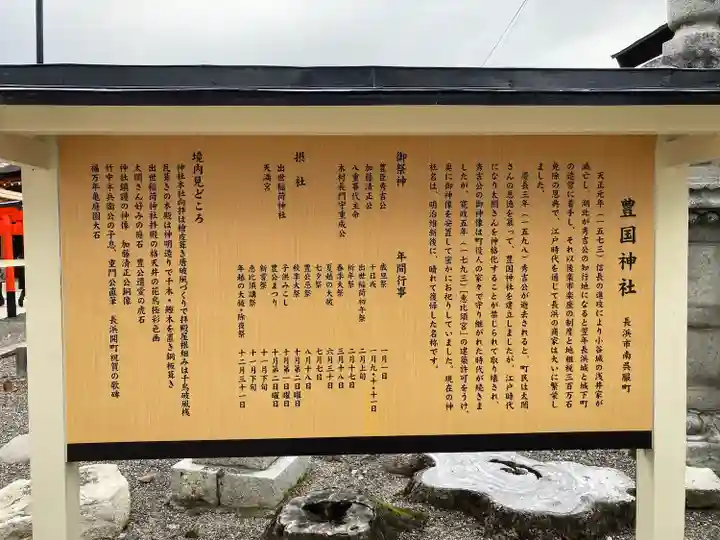 豊国神社
長浜市南呉服町
天正元年（一五七三）信長の進攻により小谷城の浅井家が
滅亡し、湖北が秀吉公の知行地になると翌年長浜城と城下町
の造営に着手し、それ以後楽市楽座の制度と地租税三百万石
免除の恩典で、江戸時代を通じて長浜の商家は大いに繁栄し
ました。
慶長三年（一五九八）秀吉公が逝去されると、町民は太閤
さんの恩徳を慕って、豊国神社を建立しましたが、江戸時代
になり太閤さんを神格化することが禁じられて取り壊され、
秀吉公の御神像は町役人の家々で守り継がれた時代が続きま
したが、寛政五年（一七九三）「恵比須宮」の建築許可をうけ、
奥に御神像を安置して密かにお祀りしていました。現在の神
社名は、明治維新後に、晴れて復帰した名称です。
御祭神
豊臣秀吉公
加藤清正公
八重事代主命
木村長門守重成公
年間行事
歳旦祭 一月一日
十日戎 一月九・十・十一日
出世稲荷初午祭 二月上旬
祈年祭 二月十七日
春季大祭 三月十八日
夏越の大祓 六月三十日
七夕祭 七月七日
豊公忌祭 八月十八日
秋季大祭 十月第二日曜日
子供みこし 十月第一日曜日
豊公まつり 十月第二日曜日
新嘗祭 十一月下旬
恵比須講祭 十一月下旬
年越の大祓・除夜祭 十二月三十一日
摂社
出世稲荷神社
天満宮
境内見どころ
神社本社向拝は檜皮葺き唐破風づくりで拝殿屋根組みは千鳥破風桟
瓦葺きの本殿は神明造りで千木・鰹木を置き銅板葺き
出世稲荷神社拝殿の格天井の花鳥極彩色画
太閤さん好みの瘤石 豊公遺愛の虎石
神社鎮護の神像 加藤清正公銅像
竹中半兵衛公の子息、重門公直筆 長浜開町祝賀の歌碑
福万年亀庭園大石